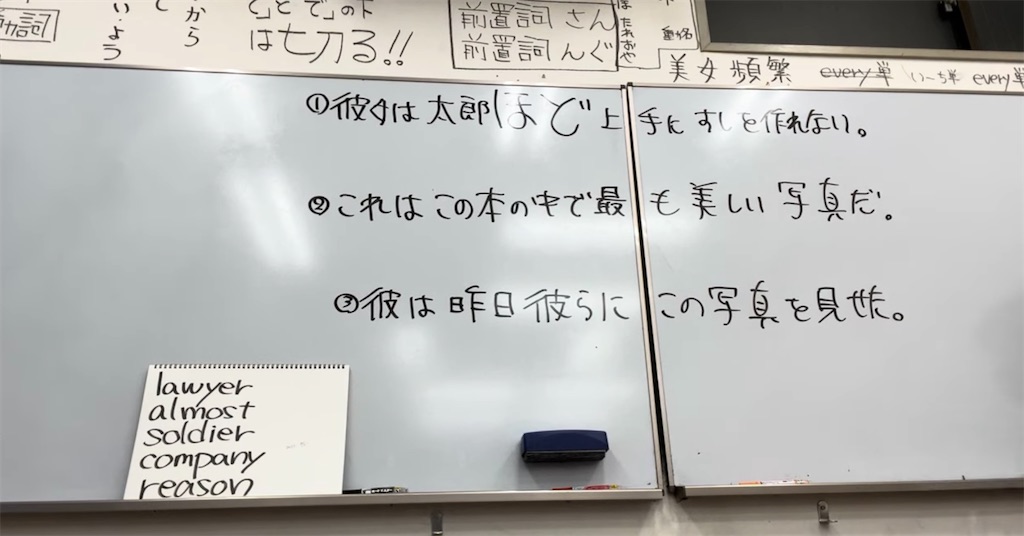 から
いよう
と」とで」の下
は切る!!
前置詞 さん
前置詞 んぐ
美女頻繁 every単 いーち単 every単
①彼女は太郎ほど上手にすしを作れない。
②これはこの本の中で最も美しい写真だ。
③彼は昨日彼らにこの写真を見せた。
lawyer
almost
soldier
company
reason